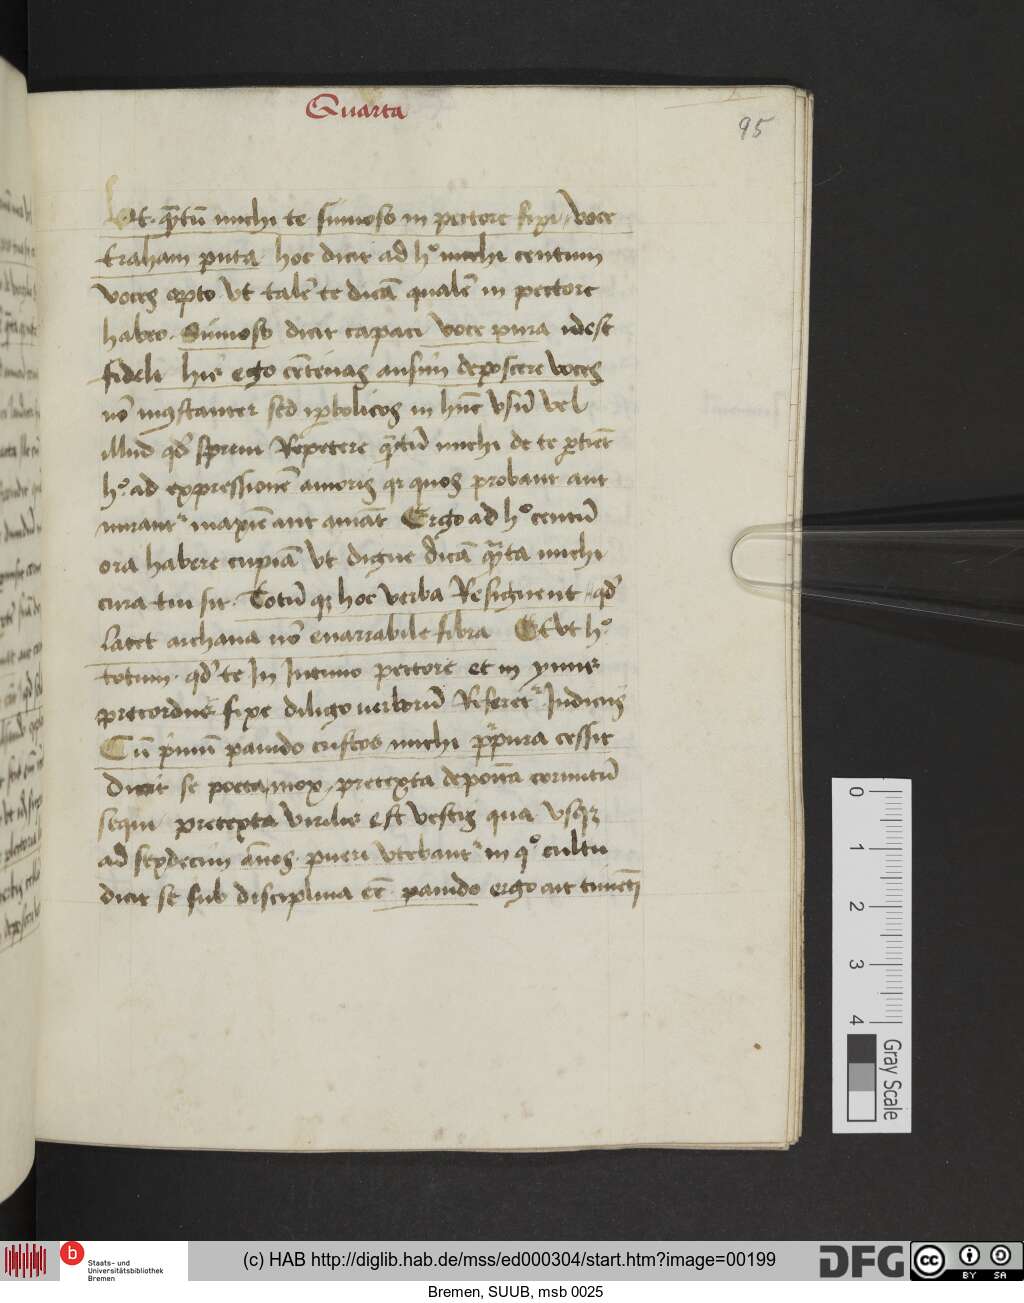 Quarta
95
Ut qͣtū michi te sinuoso in pectore fixi, voce
traham pura hoc dicit ad hͦ michi centum
voces opto vt talē te dicā qualē in pectore
habeo. Sinuoso dicit capaci voce pura idest
fideli hic ego cētenas ausim deposcere voces
nō instanter sed yꝑbolicos in hūc vsū vel
illud qd̕ sprevi Repetere qͣtū michi de te ꝑtinet
hͦ ad expressionē amoris qr quos probant aut
mirantᷣ maxīe aut amāt Ergo ad hͦ centū
ora habere cupiā vt digne dicā qͣta michi
cura tui sit. Totū qꝫ hoc verba Resignent qd̕
latet archana nō enarrabile fibra Et vt hͦ
totum qd̕ te In Intimo pectore et in ymis
precordiis fixe diligo verborū Referetᷣ Indiciis
Cū pͥmū pavido custos michi pͥpura cessit
Dicit se poeta mox pretexta deposita cornutū
sequi pretexta virilis est vestis qua vsqꝫ
ad sexdecim ānos pueri vtebantᷣ in qͦ cultu
dicit se sub disciplina eē pavido ergo ait timēti
0
1
2
3
4
Gray Scale
b
Staats- und
Universitätsbibliothek
Bremen
(c) HAB http://diglib.hab.de/mss/ed000304/start.htm?image=00199
DFG
cc
BY SA
Bremen, SUUB, msb 0025